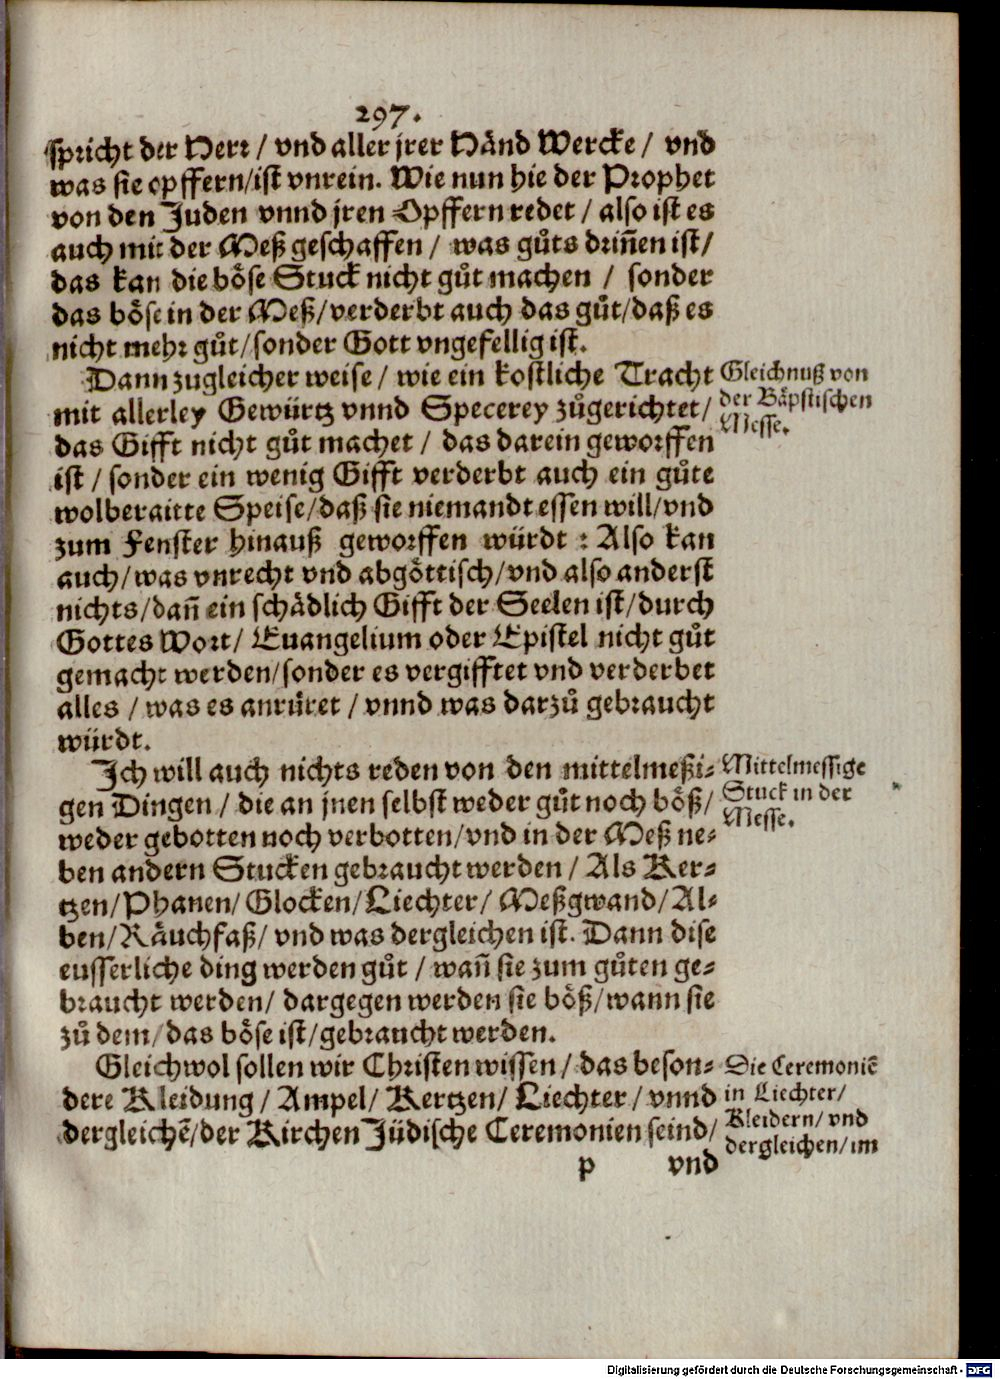 297.
spricht der Herr / vnd aller jrer Händ Wercke / vnd
was sie opffern/ist vnrein. Wie nun hie der Prophet
von den Juden vnnd jren Opffern redet / also ist es
auch mit der Meß geschaffen / was gůts drinnen ist/
das kan die böse Stuck nicht gůt machen / sonder
das böse in der Meß/verderbt auch das gůt/daß es
nicht mehr gůt/sonder Gott vngefellig ist.
Dann zugleicher weise / wie ein kostliche Tracht
mit allerley Gewürtz vnnd Specerey zůgerichtet/
das Gifft nicht gůt machet / das darein geworffen
ist / sonder ein wenig Gifft verderbt auch ein gůte
wolberaitte Speise/daß sie niemandt essen will/vnd
zum Fenster hinauß geworffen würdt : Also kan
auch/was vnrecht vnd abgöttisch/vnd also anderst
nichts/dañ ein schädlich Gifft der Seelen ist/durch
Gottes Wort/ Euangelium oder Epistel nicht gůt
gemacht werden/sonder es vergifftet vnd verderbet
alles / was es anrüret / vnnd was darzů gebraucht
würdt.
Gleichnuß von
der Bäpstischen
Messe.
Ich will auch nichts reden von den mittelmeßi-
gen Dingen / die an jnen selbst weder gůt noch böß/
weder gebotten noch verbotten/vnd in der Meß ne-
ben andern Stucken gebraucht werden / Als Ker-
tzen/Phanen/ Glocken/Liechter/ Meßgwand/Al-
ben/Räuchfaß/ vnd was dergleichen ist. Dann dise
eusserliche ding werden gůt / wañ sie zum gůten ge-
braucht werden/ dargegen werden sie böß/wann sie
zů dem/das böse ist/gebraucht werden.
Mittelmessige
Stuck in der
Messe.
Gleichwol sollen wir Christen wissen / das beson-
dere Kleidung / Ampel/ Kertzen/ Liechter / vnnd
dergleichẽ/der Kirchen Jüdische Ceremonien seind/
Die Ceremoniẽ
in Liechter/
Kleidern/ vnd
dergleichen/im
p vnd
Digitalisierung gefördert durch die Deutsche Forschungsgemeinschaft - DFG